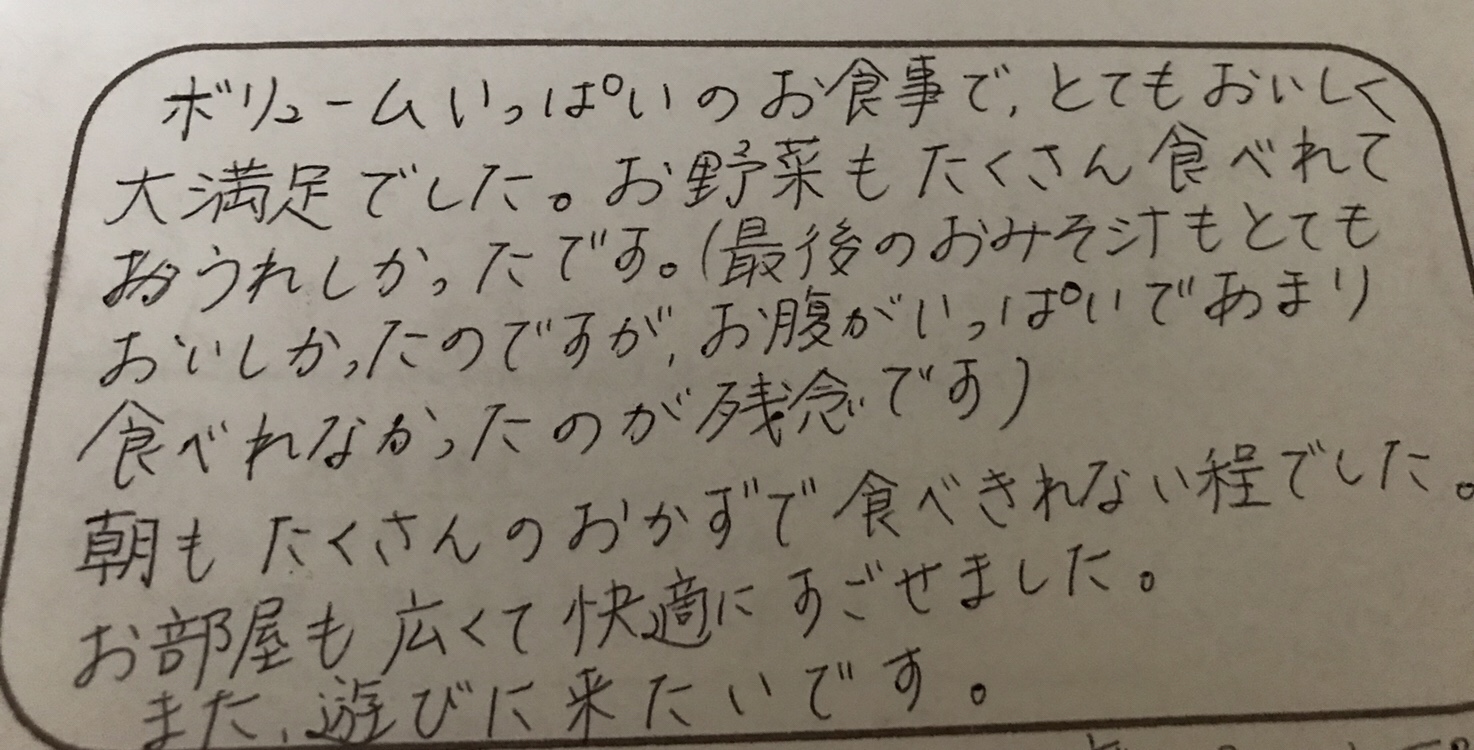 ボリュームいっぱいのお食事で,とてもおいしく
大満足でした。お野菜もたくさん食べれて
うれしかったです。(最後のおみそ汁もとても
おいしかったのですが,お腹がいっぱいであまり
食べれなかったのが残念です)
朝もたくさんのおかずで食べきれない程でした。
お部屋も広くて快適にすごせました。
また、遊びに来たいです。